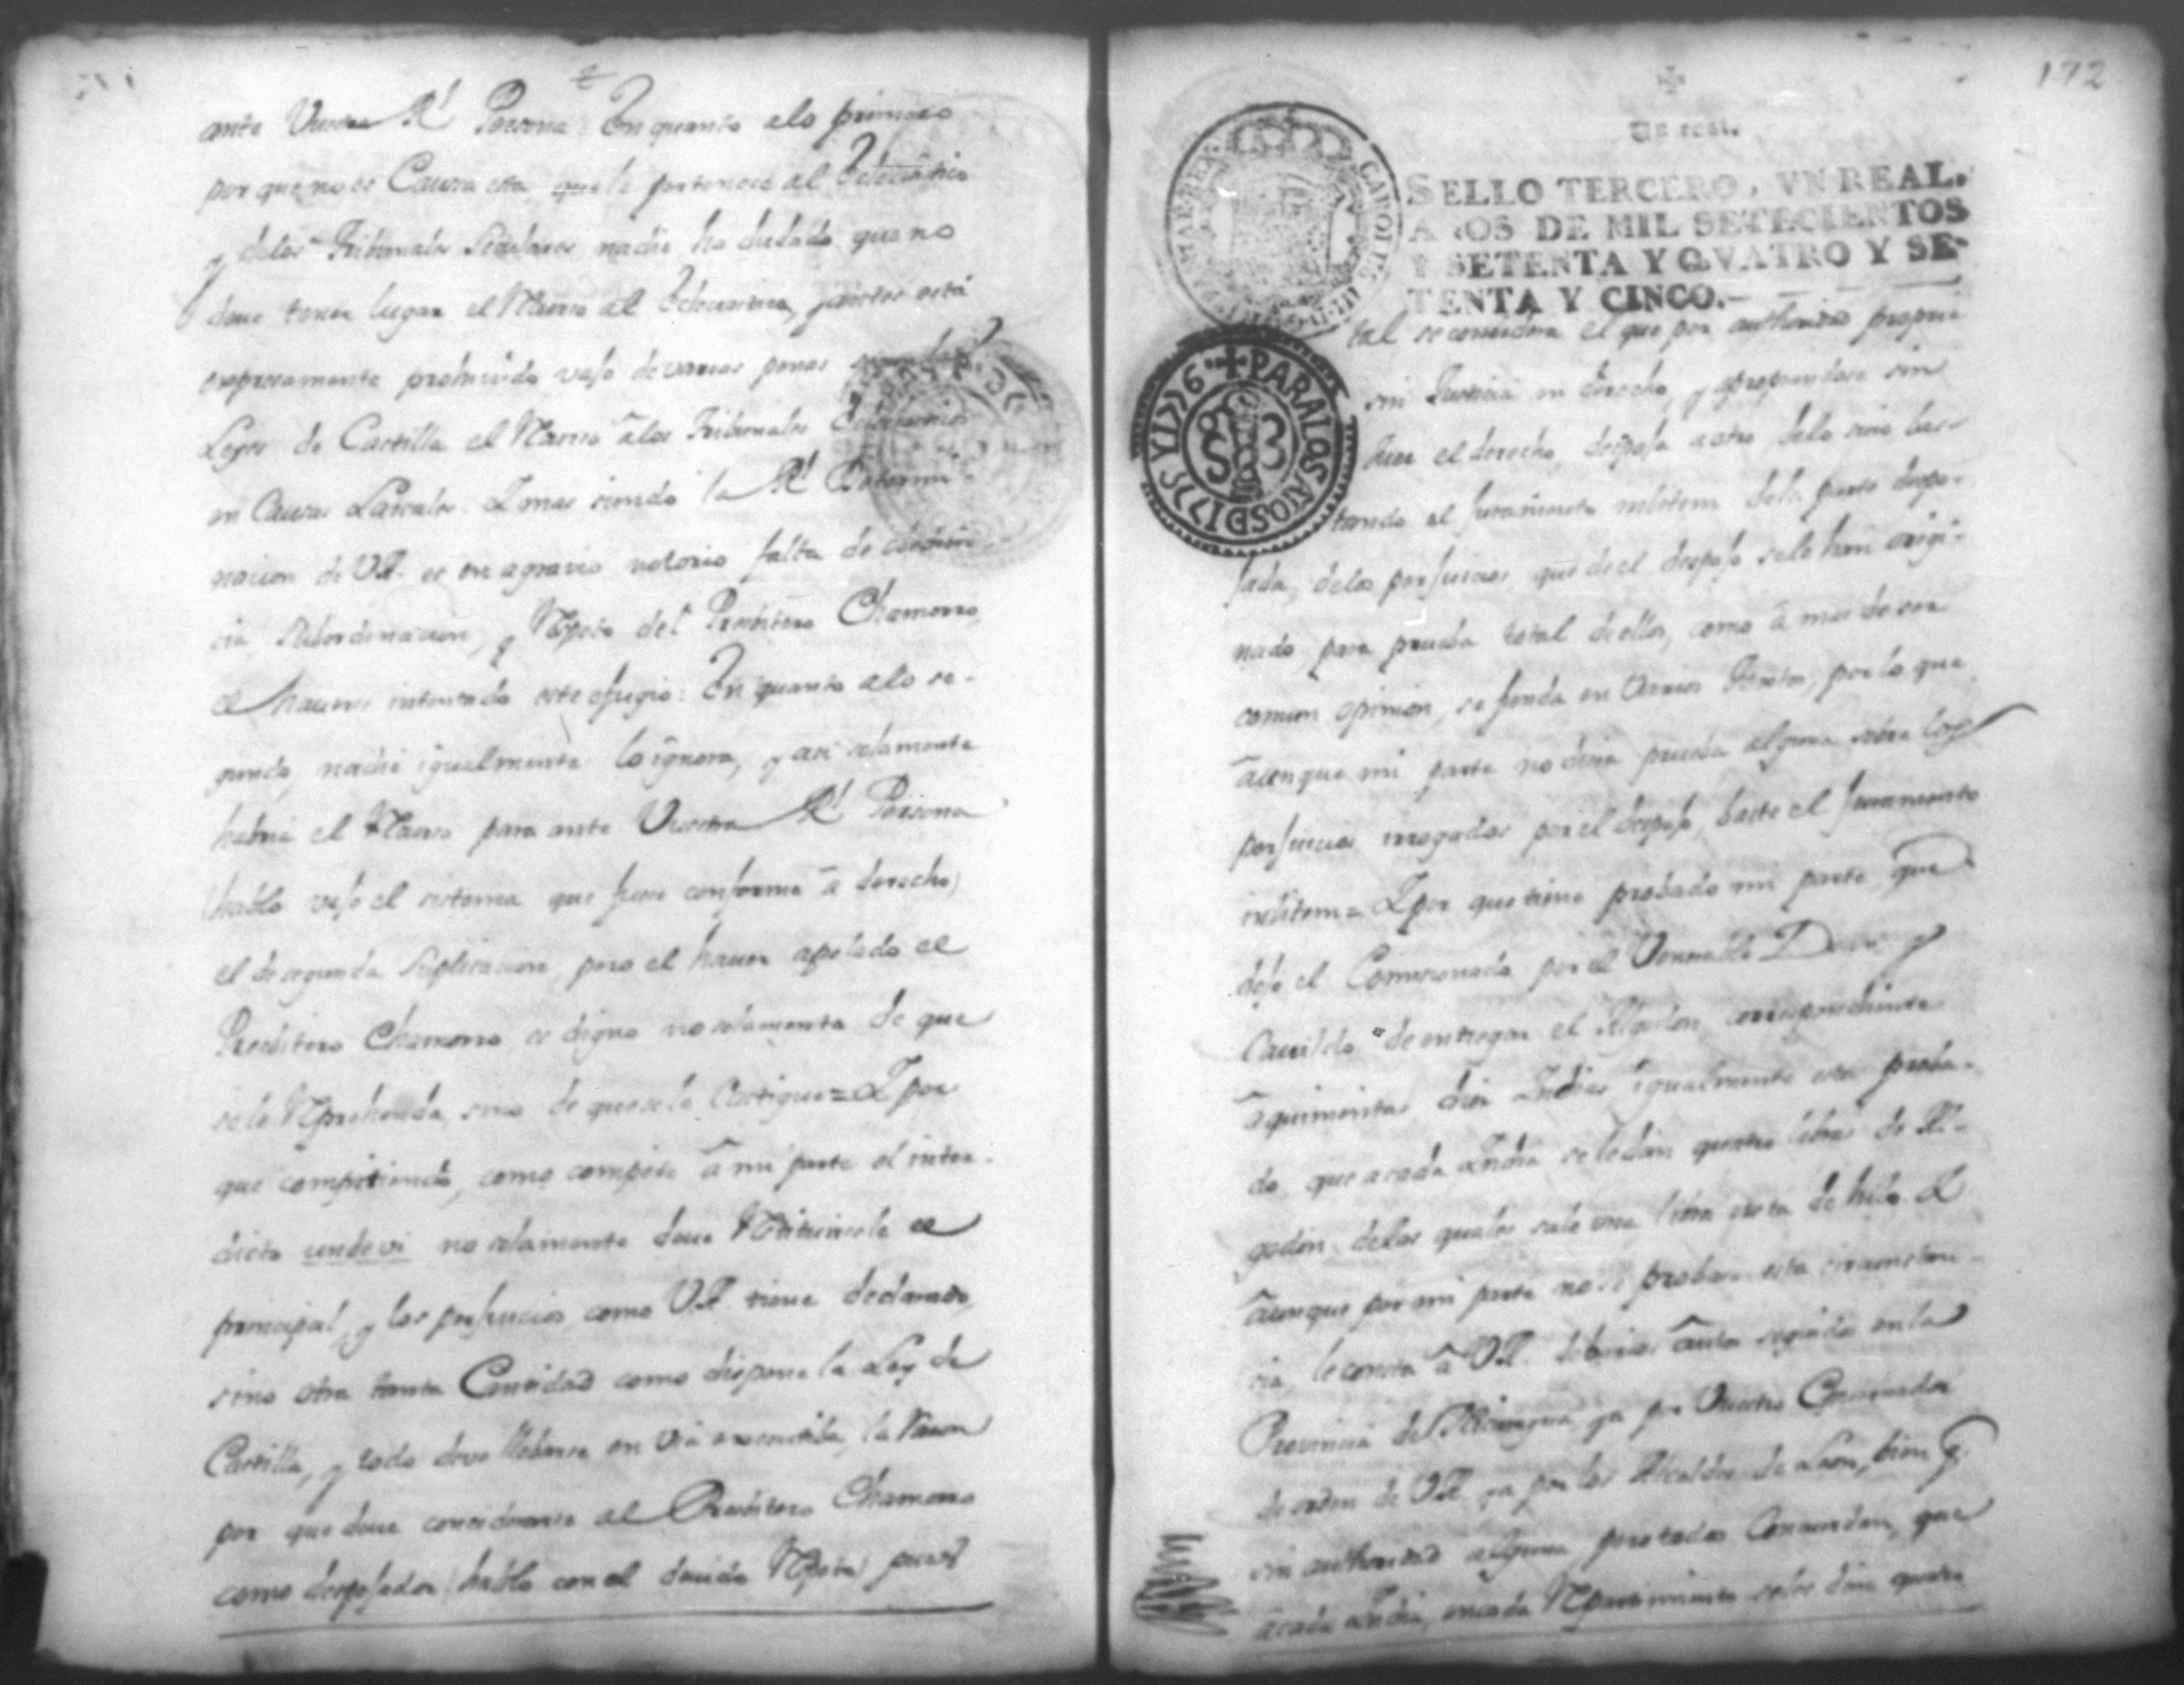 ante Vuestra Rl Persona: En quanto alo primero
por que no es Causa esta que le pertenece al Eclesiastico
y delos Tribunales Seculares nadie ha dudado que no
deve tener lugar el Recurso al Eclesiastico, y antes está
expresamente prohivido vajo de varias penas
Leyes de Castilla el Recurso â los Tribunales Eclesiasticos
en Causas Laicales. Y mas siendo la Rl Determi-
nacion de VA. es en agravio notorio falta de
cia, Subordinacion, y Rspeto del Presbitero Chamorro,
el haverse intentado este efugio: En quanto alo se-
gundo, nadie igualmente lo ignora, y asi solamente
habria el Recurso para ante Vuestra Rl Persona
(hablo vajo el sistema que fuese conforme â derecho)
el de segunda Suplicacion, pero el haver apelado el
Presbitero Chamorro es digno no solamente de que
se le Reprehenda, sino de que se le Castigue = Y por
que compitiendo, como compete â mi parte el inter-
dicto unde vi no solamente deve Restituirsele el
principal, y los perjuicios como VA. tiene declarado,
sino otra tanta Cantidad como dispone la Ley de
Castilla, y todo deve llebarse en via executiba, la Razon
por que deve considerarse al Presbitero Chamorro
como despojador (hablo con el devido Rspeto) pues
172
Un real.
SELLO TERCERO, VN REAL.
AÑOS DE MIL SETECIENTOS
Y SETENTA Y QVATRO Y SE-
TENTA Y CINCO.
CAROLUS III
PARA LOS AÑOS DE 1775 Y 1776
tal se considera el que por authoridad propria
sin Justicia ni derecho, y apropiandose sin
Juez el derecho, despoja a otro delo suio bas-
tando el Juramento inlitem dela parte despo-
jada, delos perjuicios que de el despojo se le han origi-
nado para prueba total de ellos, como â mas de ser
comun opinion, se funda en varios Textos, por lo que
âunque mi parte no diera prueba alguna sobre los
perjuicios irrogados por el despojo, baste el Juramento
inlitem = Y por que tiene probado mi parte que
dejó el Comisionado por el Venerable Dean y
Cavildo de entregar el Algodon correspondiente
â quinientas diez Indias igualmente está proba-
do, que a cada India se le dan quatro libras de Al-
godon, delas quales sale una libra neta de hilo. Y
âunque por mi parte no se probara esta circunstan-
cia, le consta â VA. delos varios âutos seguidos en la
Provincia de Nicaragua ya por Vuestro Governador
de orden de VA. ya por los Alcaldes de Leon, bien q.
sin authoridad alguna, pero todos Concuerdan, que
â cada India, en cada Repartimiento se les dan quatro